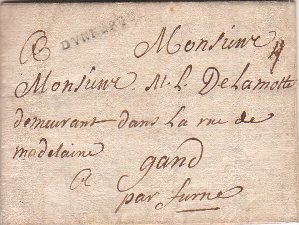 DVNKERQUE
Monsieur
Monsieur M. L. Delamotte
demeurant dans La rue de
madelaine
A gand
par furne